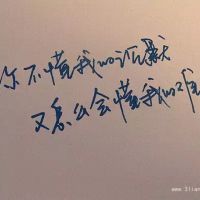 你不懂我的沉默
又怎么会懂我的难
www.3lian